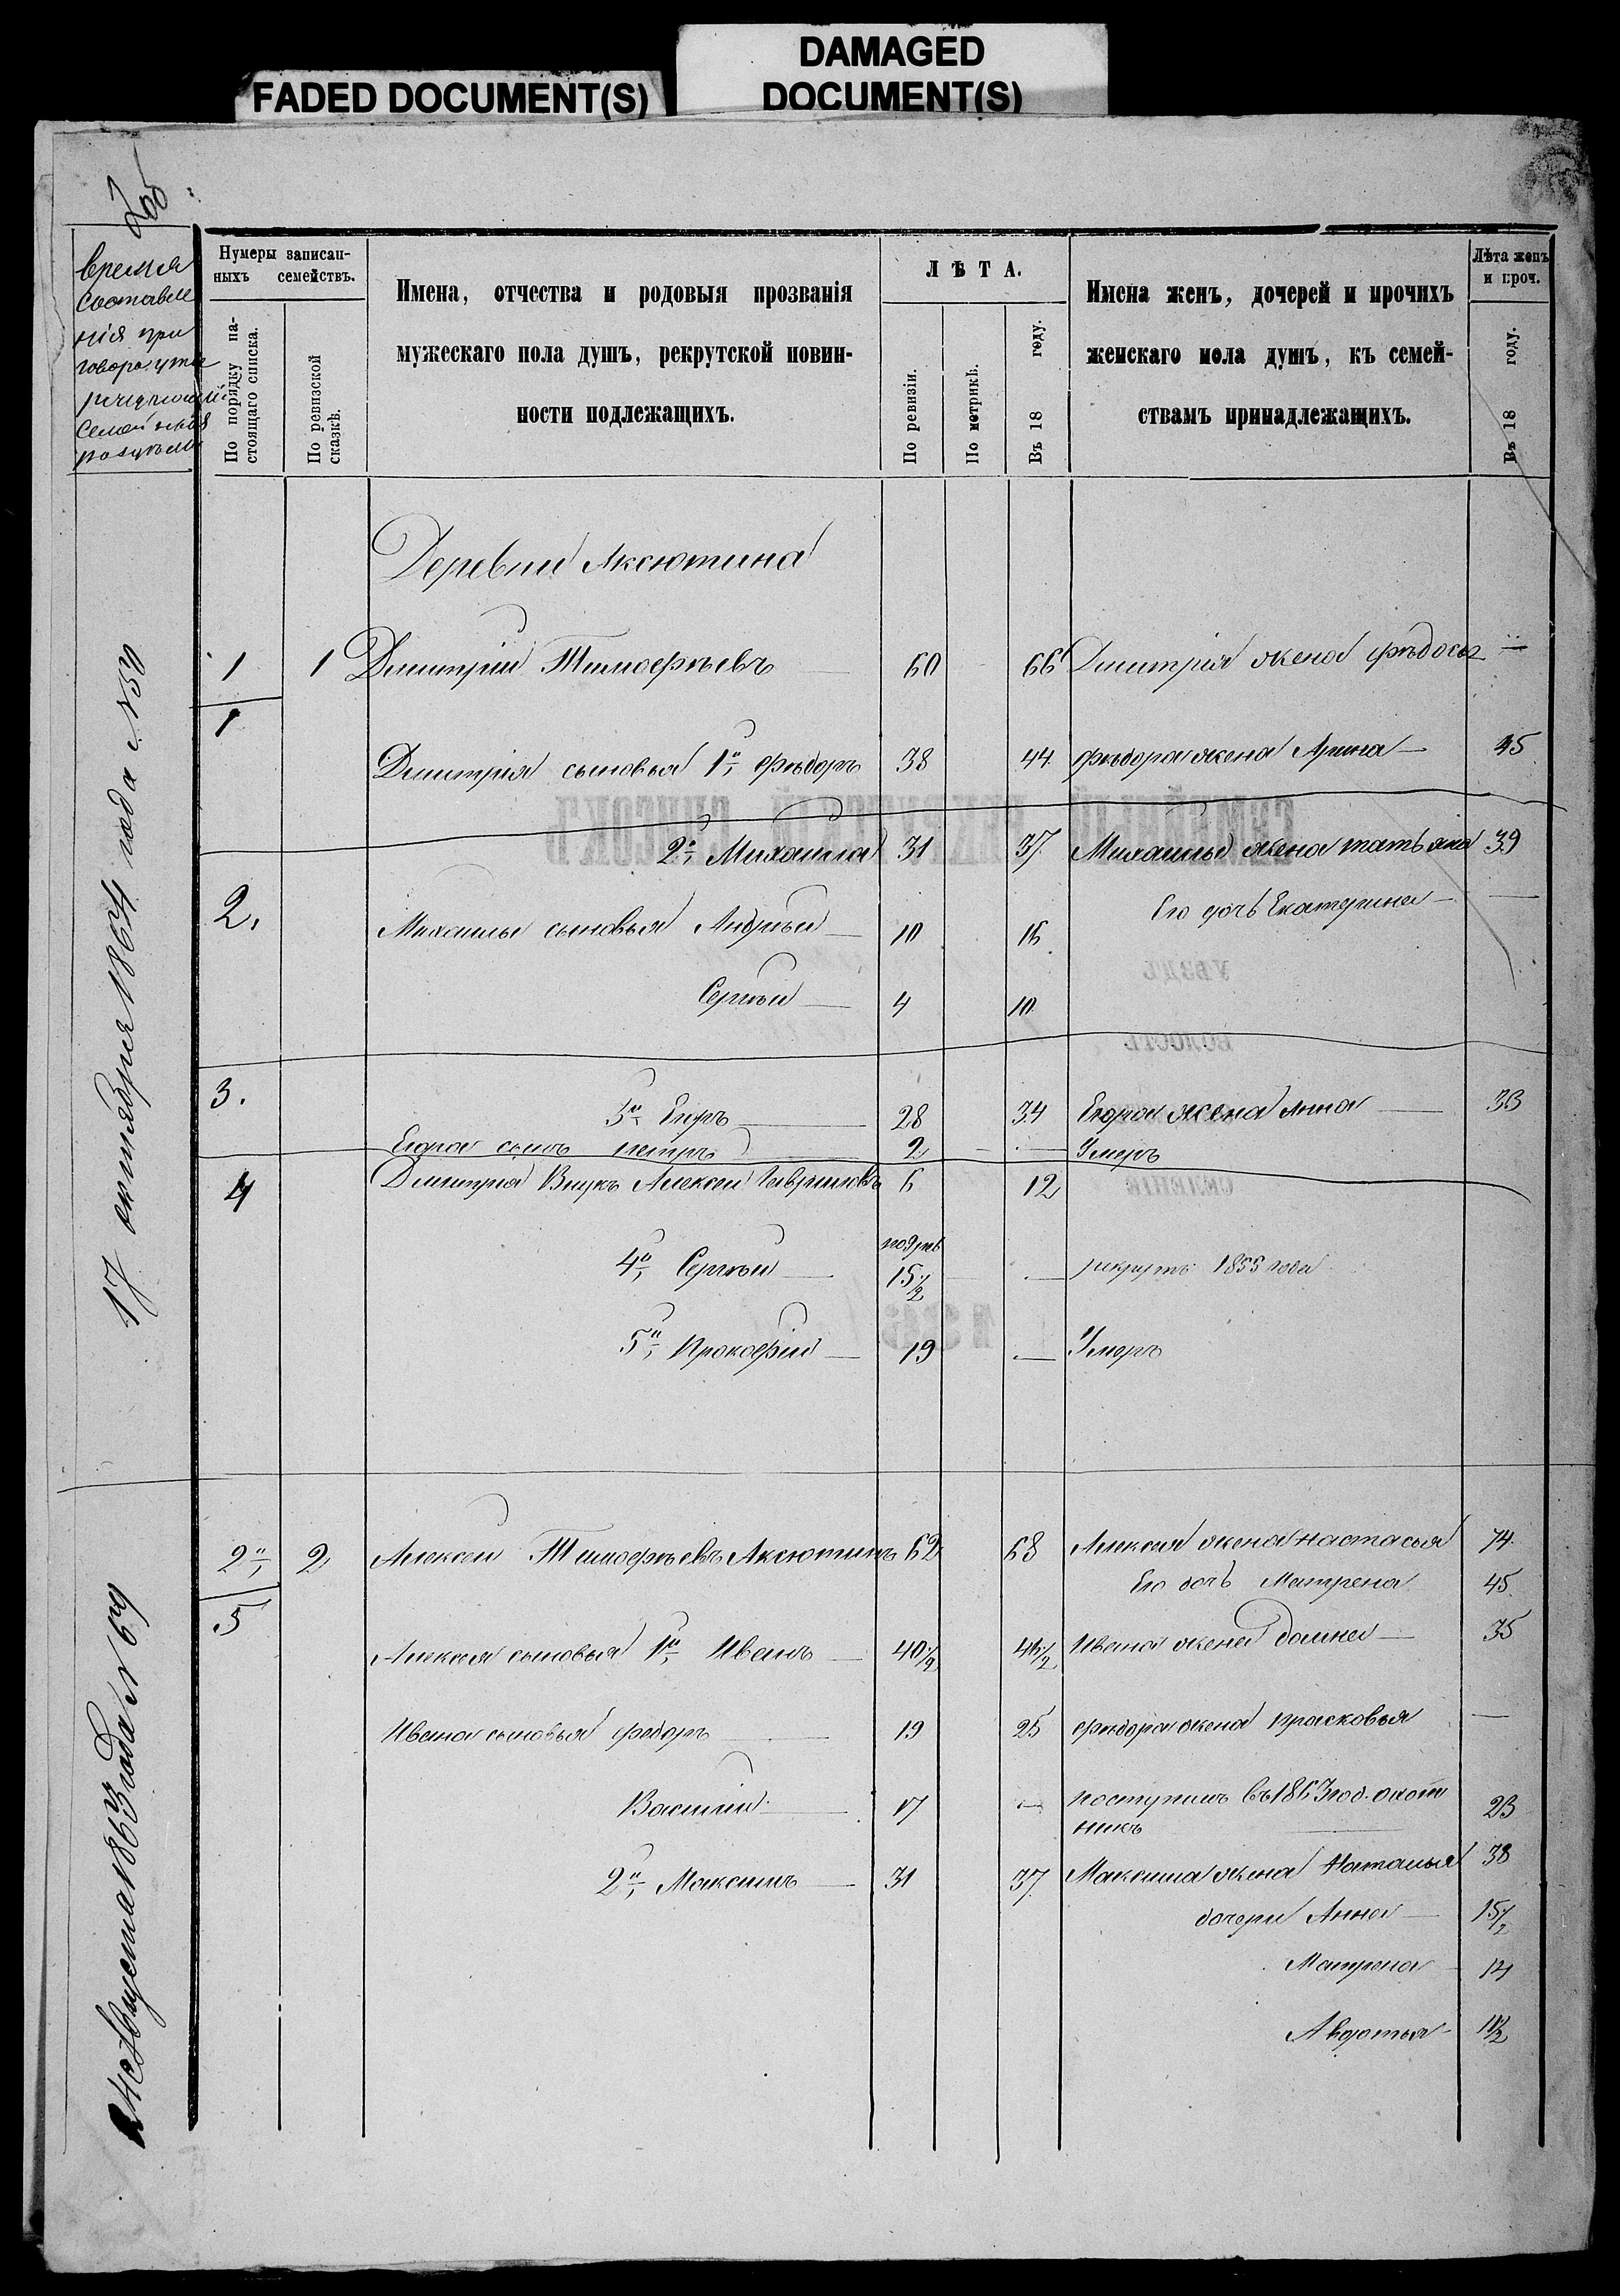 FADED DOCUMENT(S)
DAMAGED
DOCUMENT(S)
время
составле
нія при
говора утве
семейныя
Нумеры записан-
ныхъ семействъ.
По порядку на-
стоящаго списка.
По ревизской
сказкѣ.
Имена, отчества и родовыя прозванія
мужескаго пола душъ, рекрутской повин-
ности подлежащихъ.
ЛѢТА.
По ревизіи.
По метрикѣ.
Въ 18 году.
Имена женъ, дочерей и прочихъ
женскаго пола душъ, къ семей-
ствамъ принадлежащихъ.
Лѣта женъ
и проч.
Въ 18 году.
Деревни Аксютина
17 октября 1864 года №50
1 1 Дмитрій Тимофѣевъ 60 66 Дмитрія жена Фѣдосья —
1
Дмитрія сыновья 1й Фѣдоръ 38 44 Фѣдора жена Арина — 45
2й Михаила 31 37 Михаилы жена татьяна 39
2. его дочь Екатерина — —
Михаилы сыновья Андрѣй — 10 16
Сергѣй — 4 10
3. 3й Егоръ — 28 34 Егора жена Анна — 33
Егора сынъ петръ 2 — Умеръ
4 Дмитрія Внукъ Алексѣй Гавриловъ 6 12
4й Сергѣй — 15 1/2 — рекрутъ 1855 года
5й Прокофій — 19 — Умеръ
24 Августа 1863 года №69
2й 2 Алексѣй Тимофѣевъ Аксютинъ 62 68 Алексѣя жена настасья 74
его дочь Матрена 45
5
Алексѣя сыновья 1й Иванъ — 40 1/2 46 1/2 Ивана жена домна — 35
Ивана сыновья федоръ — 19 25 Фѣдора жена прасковья —
Василій — 17 — поступилъ въ 1863 год. охот
никъ 23
2й Максимъ — 31 37 Максима жена Наталья 38
дочери Анна — 15 1/2
Матрена 14
Авдотья — 11 1/2